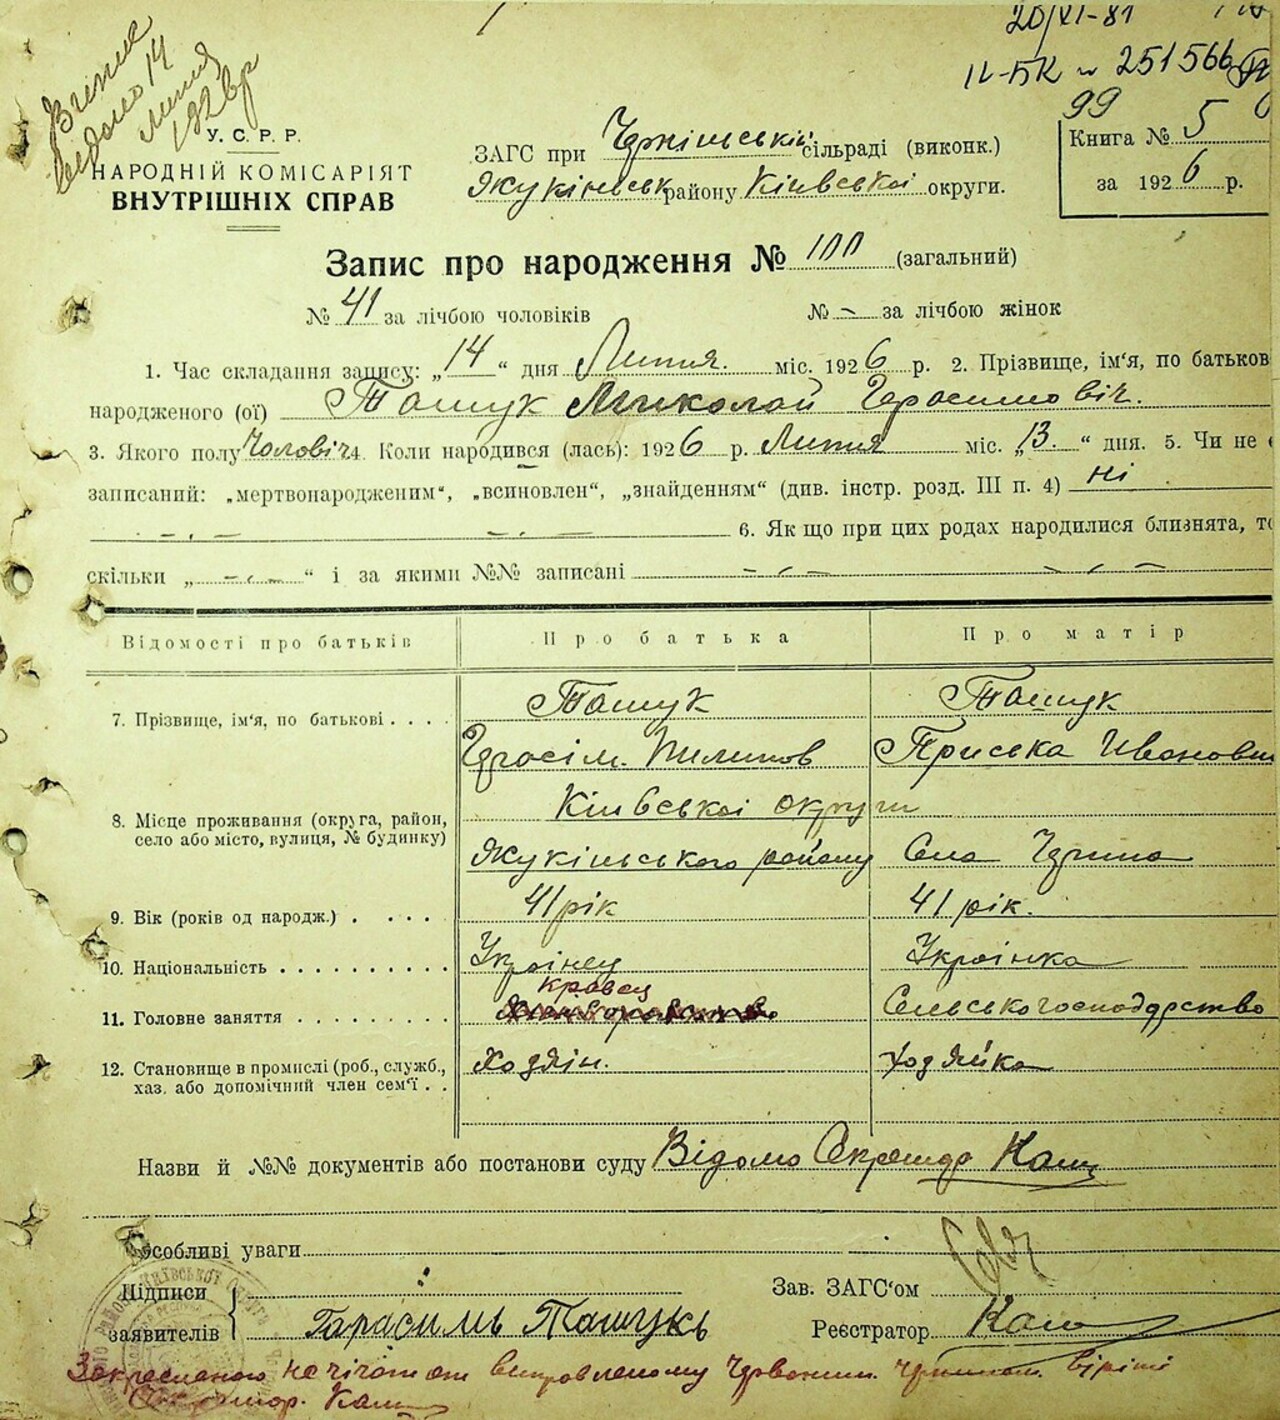 20/XI-81
II-БК № 251566
99
У. С. Р. Р.
НАРОДНІЙ КОМІСАРІЯТ
ВНУТРІШНІХ СПРАВ
ЗАГС при сільраді (виконк.)
району Київської округи.
Книга № 5
за 1926 р.
Запис про народження № 100 (загальний)
№ 41 за лічбою чоловіків № – за лічбою жінок
1. Час складання запису: „14“ дня Липня міс. 1926 р. 2. Прізвище, ім'я, по батьков
народженого (ої) Ташук Миколай Герасимовіч.
3. Якого полу Чоловіч 4. Коли народився (лась): 1926 р. Липня міс. „13.“ дня. 5. Чи не є
записаний: „мертвонародженим“, „всиновлен“, „знайденням“ (див. інстр. розд. III п. 4) ні
6. Як що при цих родах народилися близнята, то
скільки „ “ і за якими №№ записані
Відомості про батьків Про батька Про матір
7. Прізвище, ім'я, по батькові Ташук Ташук
Герасім. Пилипов Приська Ивановн
8. Місце проживання (округа, район, село або місто, вулиця, № будинку) Київськоі округи
району Села
9. Вік (років од народж.) 41 рік 41 рік.
10. Національність Украінец Украінка
11. Головне заняття кравец Сельськогосподарство
12. Становище в промислі (роб., служб., хаз. або допомічний член сем'ї Хозяін. Хозяйка
Назви й №№ документів або постанови суду Відомо Секретарь
Особливі уваги
Підписи заявителів Гарасимь Ташукь
Зав. ЗАГС'ом
Реєстратор
Закресленого не чітати виправленому Червоним чернилом віріти